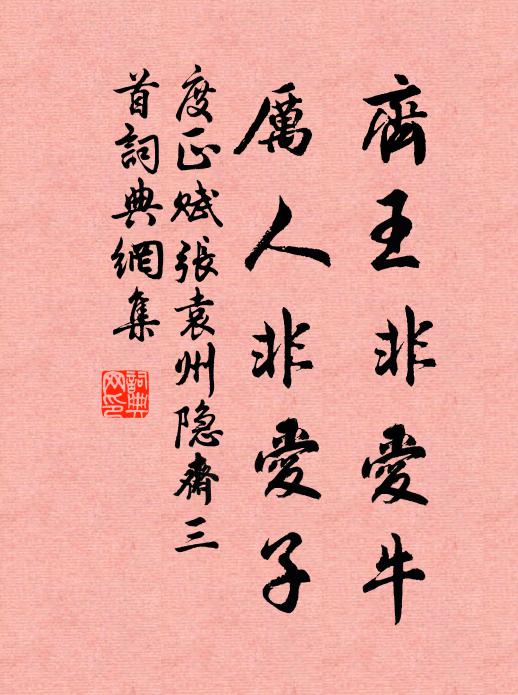 齊王非愛牛
厲人非愛子
度正賦張袁州隐齋三
首詞典網集
詞典
网印